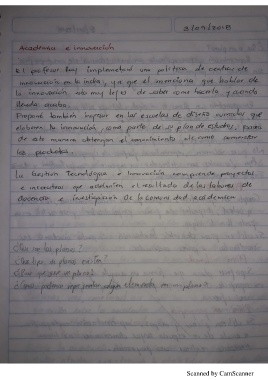 2/09/2018
Academia e innovación
El profesor hay implementad una política de centros de
innovación en la india, ya que el menciona que hablar de
la innovación no muy lejos de saber como hacerla y cuando
llevada acabo.
Propone también ingresar en las escuelas de diseño curricular que
elaboren la innovación, como parte de su plan de estudios,
de esta manera obtengan el conocimiento de como aumentar
los productos.
La Gestion Tecnológica e Innovación comprende proyectos
e incentivos que administren el resultado de las labores de
docencia e investigacion de la comunidad academica
¿Que es un plano?
¿Que tipo de planos existen?
¿Como podemos representar algun elemento en un plano?
Scanned by CamScanner